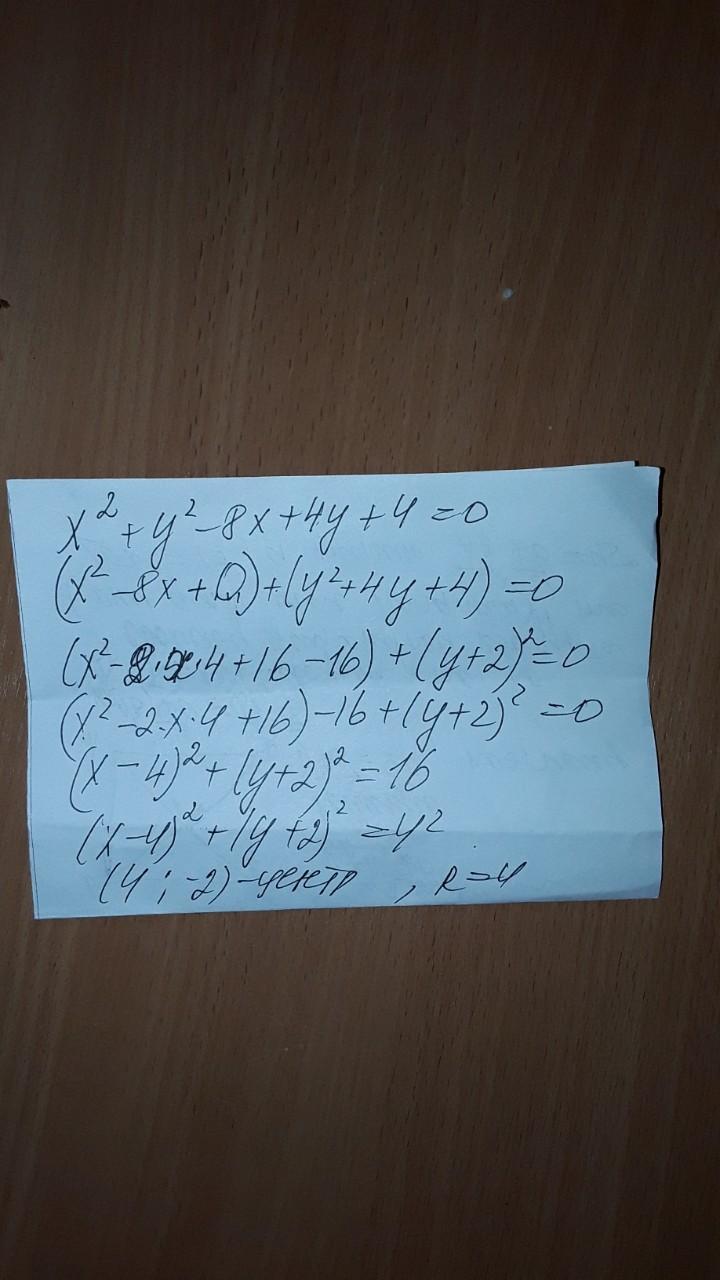 x² + y² - 8x + 4y + 4 = 0
(x² - 8x + 0) + (y² + 4y + 4) = 0
(x² - 2·x·4 + 16 - 16) + (y+2)² = 0
(x² - 2·x·4 + 16) - 16 + (y+2)² = 0
(x - 4)² + (y+2)² = 16
(x-4)² + (y+2)² = 4²
(4 ; -2) - центр , R = 4